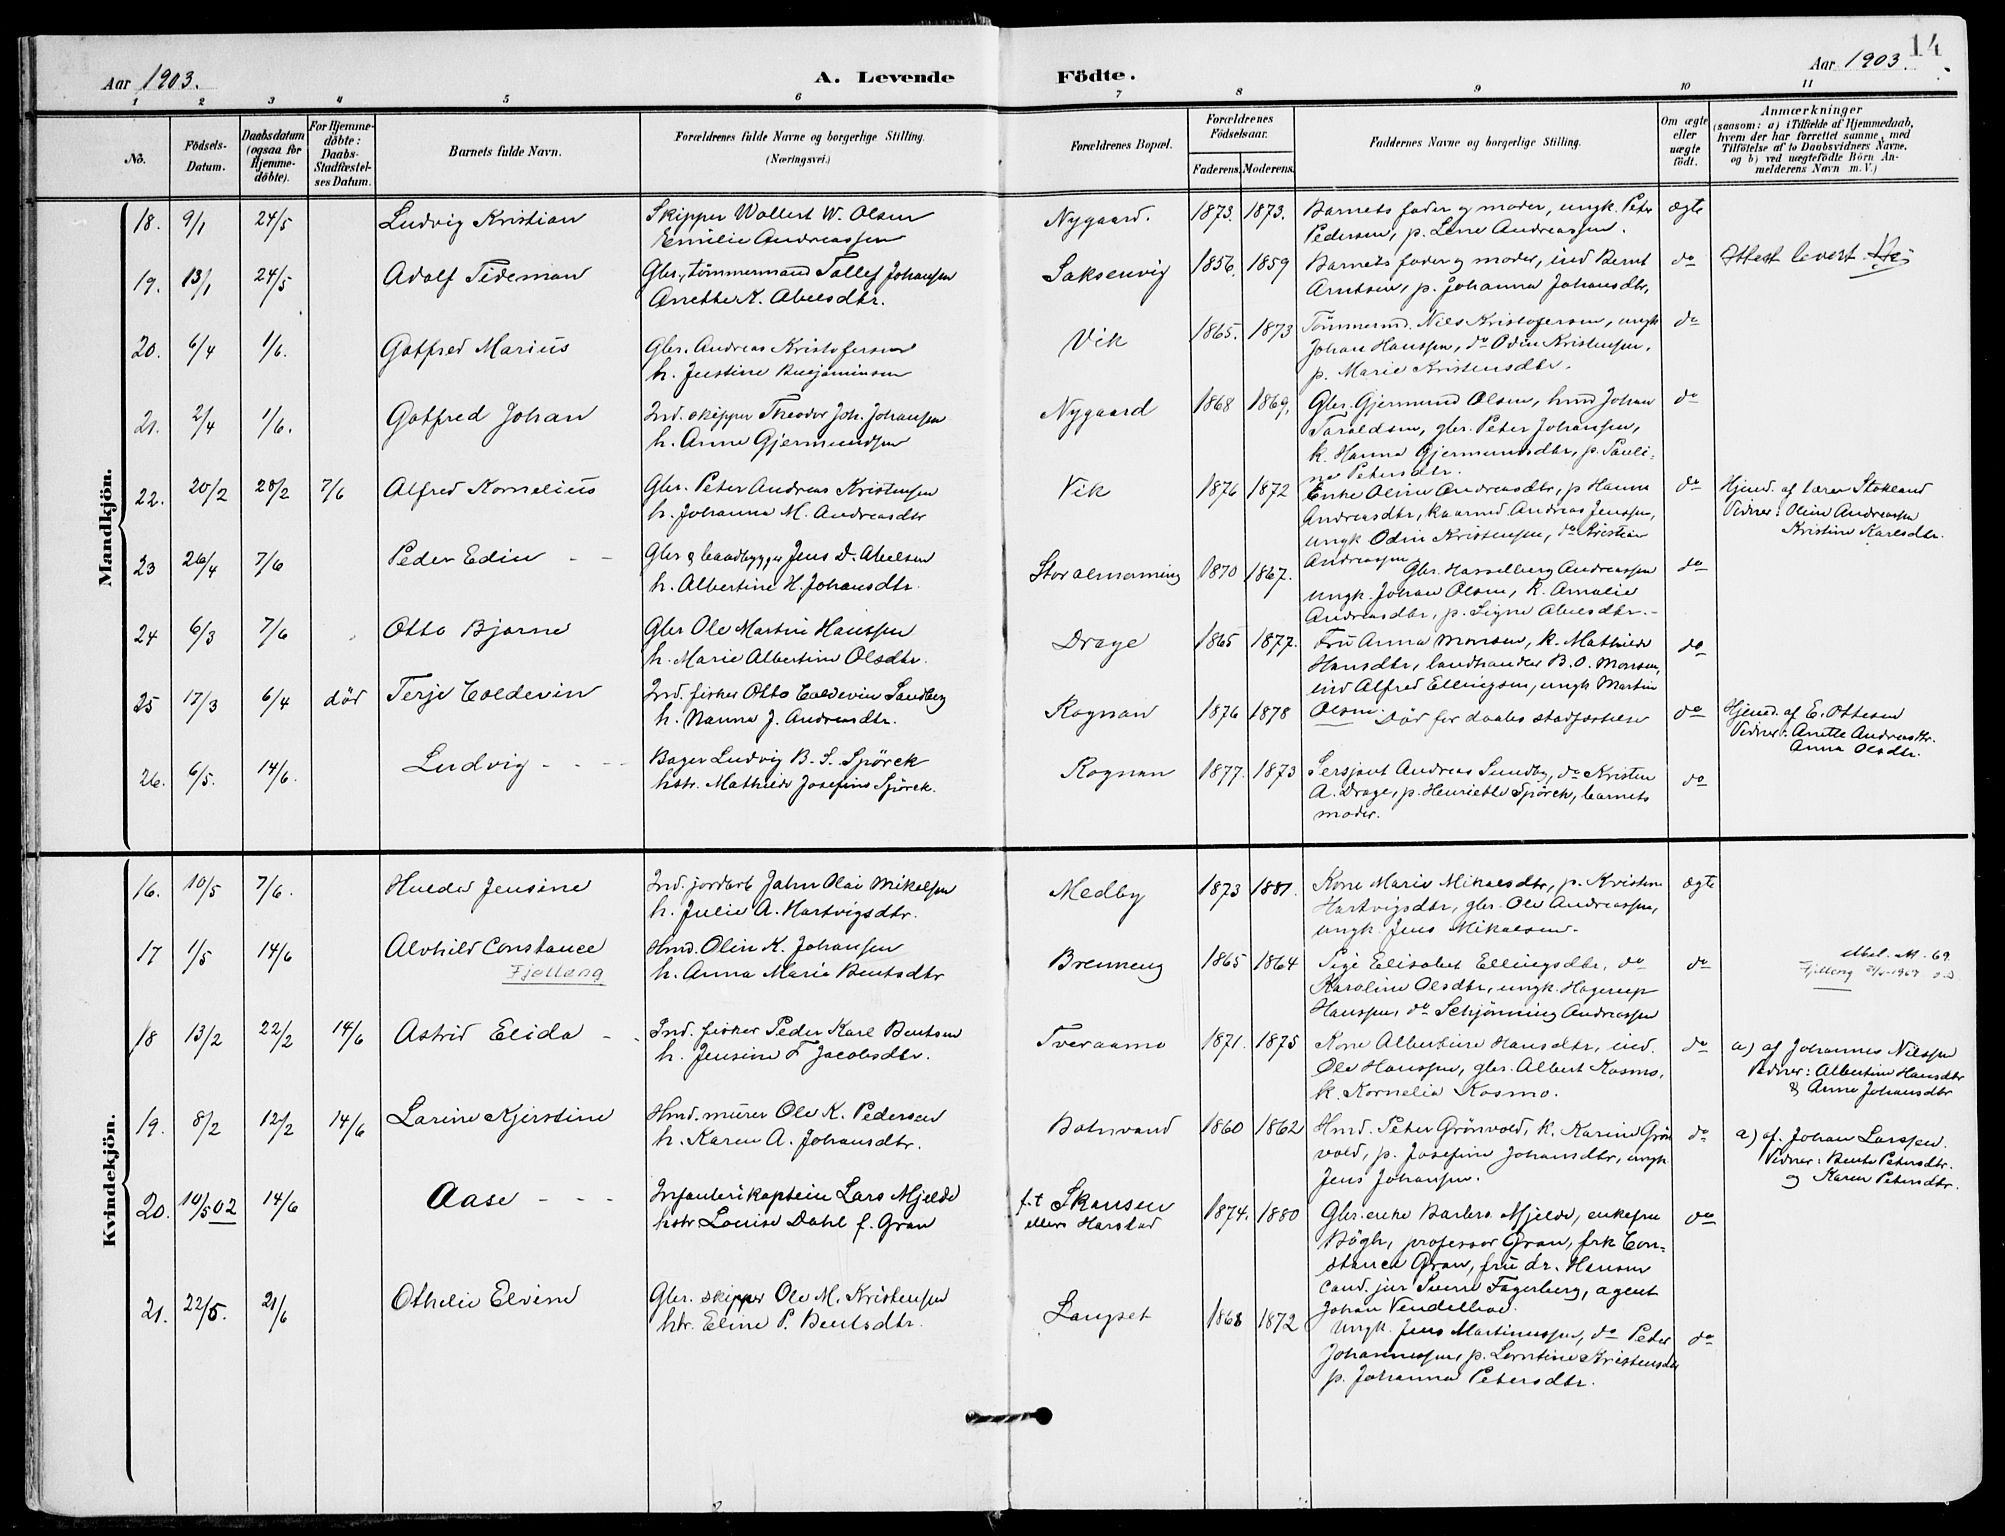 14
Aar 1903.
A. Levende Födte.
Aar 1903.
1 2 3 4 5 6 7 8 9 10 11
No.
Födsels-Datum.
Daabsdatum (ogsaa for Hjemme-döbte).
For Hjemme-döbte: Daabs-Stadfæstel-ses Datum.
Barnets fulde Navn.
Forældrenes fulde Navne og borgerlige Stilling.
(Næringsvei.)
Forældrenes Bopæl.
Forældrenes Födselsaar.
Faderens. Moderens.
Faddernes Navne og borgerlige Stilling.
Om ægte eller uægte födt.
Anmærkninger
(saasom: a) i Tilfælde af Hjemmedaab,
hvem der har forrettet samme, med
Tilföielse af to Daabsvidners Navne,
og b) ved uægtefödte Börn An-
melderens Navn m. V.)
Mandkjön.
18. 9/1 24/5 Ludvig Kristian
Skipper Wollert W. Olsen
Emilie Andreassen
Nygaard. 1873. 1873.
Barnets fader og moder, ungk. Peter
Pedersen, p. Lene Andreassen.
ægte
19. 13/1 24/5 Adolf Tideman
Gbr., tömmermand Tollef Johansen
Anette K. Abelsdtr.
Saksenvig 1856. 1859
Barnets fader og moder, ind Bernt
Arntsen, p. Johanna Johansdtr.
do
Attest levert
20. 6/4 1/6. Gotfred Marius
Gbr. Andreas Kristofersen
h. Justine Benjaminsen
Vik 1865. 1873
Tömmermd. Nils Kristofersen, ungk
Johan Hanssen, do Odin Kristensen,
p. Marie Kristensdtr.
do
21. 2/4 1/6. Gotfred Johan
Ind. skipper Theodor Joh. Johansen
h. Anne Gjermundsen
Nygaard 1868 1869,
Gbr. Gjermund Olsen, hmd Johan
Taraldsen, gbr. Peter Johansen,
k. Hanna Gjermundsdtr, p. Pauli-
ne Petersdtr.
do
22. 20/2 28/2 7/6 Alfred Kornelius
Gbr. Peter Andreas Kristensen
h. Johanna M. Andreasdtr
Vik 1876 1872
Enke Oline Andreasdtr, p Hanna
Andreasdtr, kaarmd. Andreas Jenssen,
ungk Odin Kristensen, do Kristian
Andreassen
do
Hjemd. af lærer Stokland
Vidner: Oline Andreassen
Kristine Karlsdtr.
23 26/4 7/6 Peder Edin
Gbr & baadbygger Jens D. Abelsen
h. Albertine H. Johansdtr.
Storalmenning 1870 1867.
Gbr. Hasselberg Andreassen
ungk. Johan Olsen, k. Amalie
Andreasdtr, p. Signe Abelsdtr.
do
24 6/3 7/6 Otto Bjarne
Gbr Ole Martin Hanssen
h. Marie Albertine Olsdtr.
Drage 1865 1877.
Fru Anna Monsen, k. Mathilde
Hansdtr, landhandler B. O. Monsen,
ind Alfred Ellingsen, ungk Martin
Olsen
do
25 17/3 6/4 död Terje Coldevin
Ind. fisker Otto Coldevin Sandberg
h. Nanna J. Andreasdtr.
Rognan 1876 1878
Död før daabs stadfæstelse
do
Hjemd. af E. Ottesen
Vidner: Anette Andreasdtr.
Anna Olsdtr.
26. 6/5. 14/6. Ludvig
Bager Ludvig B. S. Spörck
hstr. Mathilde Josefine Spörck.
Rognan 1877. 1873
Sersjant Andreas Sundby, do Kristen
A. Drage, p. Henriette Spörck, barnets
moder.
do
Kvindekjön.
16. 10/5 7/6. Hulda Jensine
Ind. jordarb Jahn Olai Mikalsen
h. Julie A. Hartvigsdtr.
Medby 1873 1881.
Kone Marie Mikalsdtr, p. Kristine
Hartvigsdtr, gbr. Ole Andreassen,
ungk. Jens Mikalsen.
ægte
17 1/5 14/6 Alvhild Constance
Fjelleng
Hmd. Olin K. Johansen
h. Anna Maria Bentsdtr
Brenneng 1865 1864
Pige Elisabet Ellingsdtr, do
Karoline Olsdtr, ungk. Hagerup
Hanssen, do Schjönning Andreassen
do
Fjelleng
18 13/2 22/2 14/6 Astrid Elida
Ind. fisker Peder Karl Bentsen
h. Jensine F Jacobsdtr.
Tveraamo 1871. 1875
Kone Albertine Hansdtr, ind.
Ole Hanssen, gbr. Albert Kosmo,
k. Kornelia Kosmo.
do
a) af Johannes Nilssen
Vidner: Albertine Hansdtr
& Anne Johansdtr
19. 8/2 12/2 14/6 Larine Kjerstine
Hmd. murer Ole K. Pedersen
h. Karen A. Johansdtr.
Botnvand 1860 1862
Hmd. Peter Grönvold, k. Karine Grön
vold, p. Josefine Johansdtr, ungk
Jens Johansen.
do
a) af. Johan Larssen.
Vidner: Bente Petersdtr.
og Karen Petersdtr.
20. 10/5 02 14/6 Aase
Infanterikaptein Lars Mjelde
hstr Louise Dahl f. Gran
f.t Skansen
ellers Harstad 1874. 1880
Gbr. enke Barbro Mjelde, enkefru
Bögh, professor Gran, frk Con-
stance Gran, fru dr. Hansen
cand. jur Sverre Fagerberg, agent
Johan Vendelboe.
do
21. 22/5. 21/6 Othelie Elvine
Gbr. skipper Ole M. Kristensen
hstr. Eline P. Bentsdtr.
Langset 1868 1872
Ungk. Jens Martinussen, do Peter
Johannessen, p. Lorntine Kristensdtr
p. Johanna Petersdtr.
do